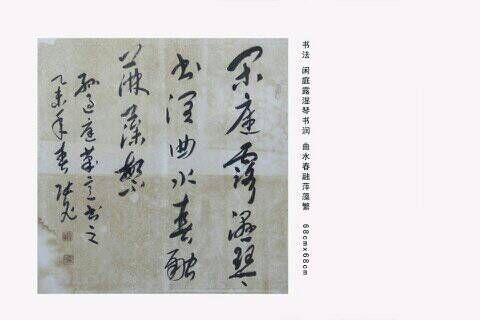 书法 闲庭露湿琴书润 曲水春融萍藻繁 68cmx68cm
闲庭露湿琴
书润曲水春融
萍藻繁
孙过庭笔意书之
乙未年春